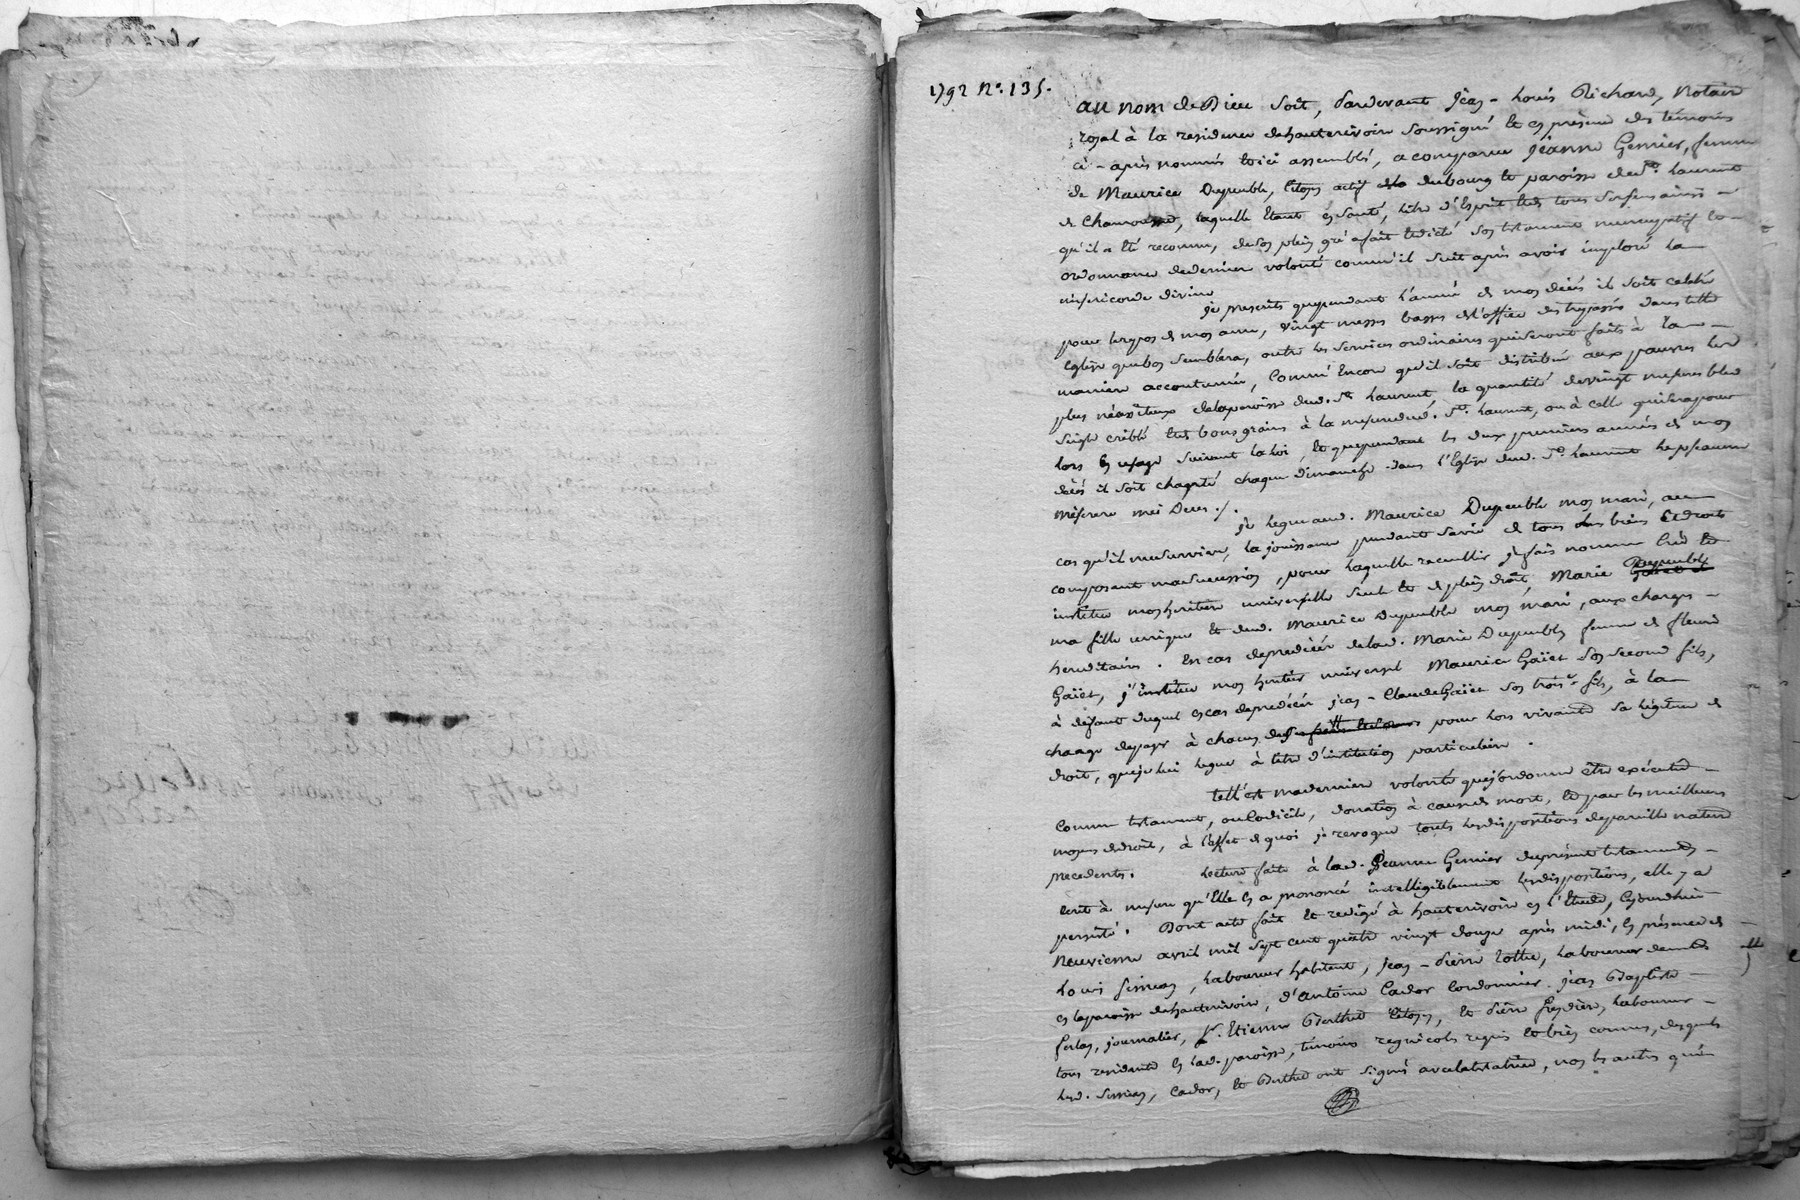 1792 n.° 135.
au nom de Dieu soit, Pardevant jean-Louis Richard, Notaire
royal à la residence dehauterivoire soussigné et en présence des témoins
ci-après nommés et ici assemblés, a comparue jeanne Gernier, femme
de Maurice Dupeuble, Citoyen actif du bourg et paroisse de St. Laurent
de Chamousset, laquelle Etant en santé, libre d'Esprit et de tous ses sens ainsi
qu'il a Eté reconnu, de son plein gré a fait et dicté son testament nuncupatif et
ordonnance de derniere volonté comme il suit après avoir imploré la
miséricorde divine
je prescrits que pendant l'année de mon décès il soit celebré
pour le repos de mon ame, vingt messes basses de l'office des trepassés dans telle
Eglise que bon semblera, outre les services ordinaires qui seront faits à la
maniere accoutumée, Comme Encore qu'il soit distribué aux pauvres les
plus nécessiteux de la paroisse dud. St. Laurent, la quantité de vingt mesures bled
seigle criblé et de bons grains à la mesure dud. St. Laurent, ou à celle qui sera pour
lors en usage suivant la loi, et que pendant les deux premieres années de mon
décès il soit chanté chaque dimanche dans l'Eglise dud. St. Laurent le pseaume
Miserere mei Deus ./.
je legue aud. Maurice Dupeuble mon mari, au
cas qu'il me survive, la jouissance pendant sa vie de tous les biens et droits
composant ma succession, pour laquelle recueillir je fais nomme crée et
institue mon heritiere universelle seule et de plein droit, Marie Dupeuble
ma fille unique et dud. Maurice Dupeuble mon mari, aux charges
hereditaires. En cas de predécés de lad. Marie Dupeuble femme de fleurie
Gaïet, j'institue mon heritier universel Maurice Gaïet son second fils,
à défaut duquel en cas de predécés jean-Claude Gaïet son trois.e fils, à la
charge de payer à chacun de pour lors vivants sa légitime de
droit, que je lui legue à titre d'institution particuliere.
telle est ma derniere volonté que j'ordonne être exécutée
Comme testament, ou Codicile, donation à cause de mort, et par les meilleurs
moyens de droit, à l'effet de quoi je revoque toutes les dispositions de pareille nature
precedents. Lecture faite à lad. jeanne Gernier du présent testament
Ecrit à mesure qu'Elle en a prononcé intelligiblement les dispositions, elle y a
persisté. Dont acte fait et redigé à hauterivoire en l'Etude, cejourd'hui
neuvieme avril mil sept cent quatre vingt douze après midi, en présence de
Louis Simean, Laboureur habitant, jean-pierre Lotte, Laboureur demeurant
en la paroisse dehauterivoire, d'antoine Cador Cordonnier, jean Baptiste
ferlay, journalier, Sr. Etienne Berthet Citoyen, et pierre freydiere, laboureur
tous residants en lad. paroisse, témoins regnicoles requis et bien connus, desquels
lesd. Simean, Cador, et Berthet ont signé avec la testatrice, non les autres qui n'